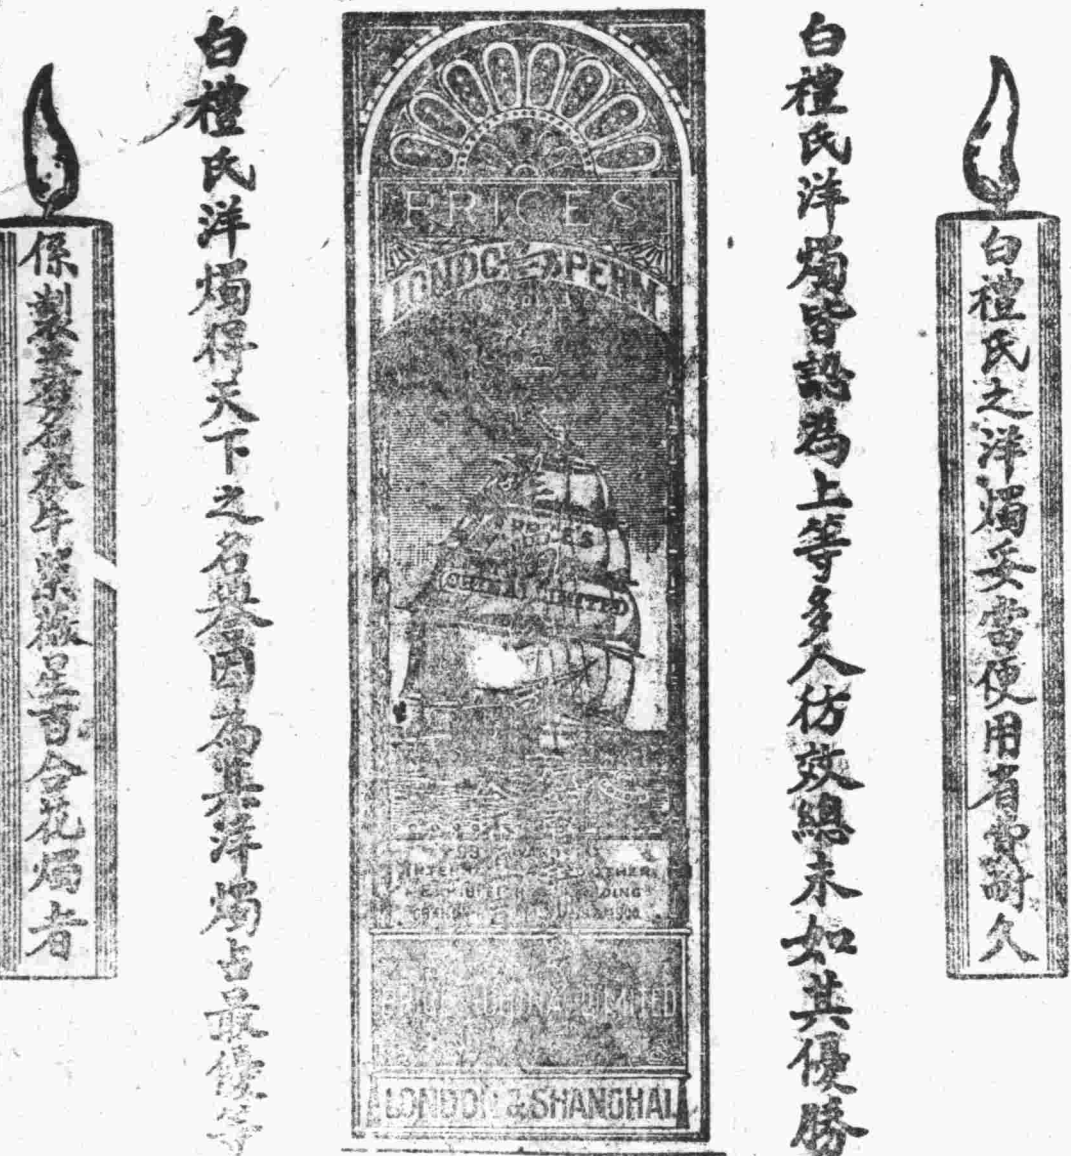 白禮氏之洋燭妥當便用省費耐久
白禮氏洋燭皆認為上等多人彷效總未如其優勝
PRICES
LONDON SPERM
PRICES
CHINA LIMITED
OTHER
LONDON & SHANGHAI
白禮氏洋燭得天下之名譽因為其洋燭占最優等
係製造著名水牛紫薇星百合花燭者